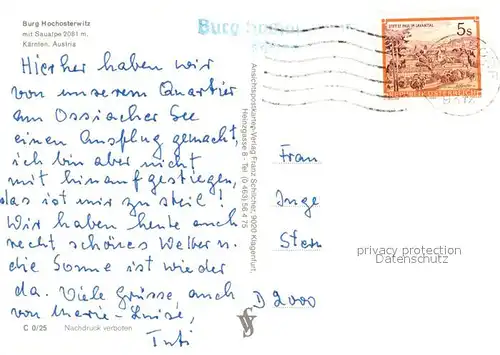 Burg Hochosterwitz
mit Saualpe 2081 m.
Kärnten, Austria
Burg
STIFT ST. PAUL IM LAVANTTAL
5s
Hierher haben wir
von unserem Quartier
am Ossiacher See
einen Ausflug gemacht,
ich bin aber nicht
mit hinaufgestiegen,
das ist mir zu steil!
Wir haben heute auch
recht schönes Wetter u.
die Sonne ist wieder
da. Viele Grüsse, auch
von Marie-Luise,
Tuti
Ansichtspostkarten-Verlag Franz Schilcher, 9020 Klagenfurt,
Heinzgasse 8 - Tel. (0 463) 56 4 75
Frau
Inge
Stern
D 2000
privacy protection
Datenschutz
C 0/25 Nachdruck verboten